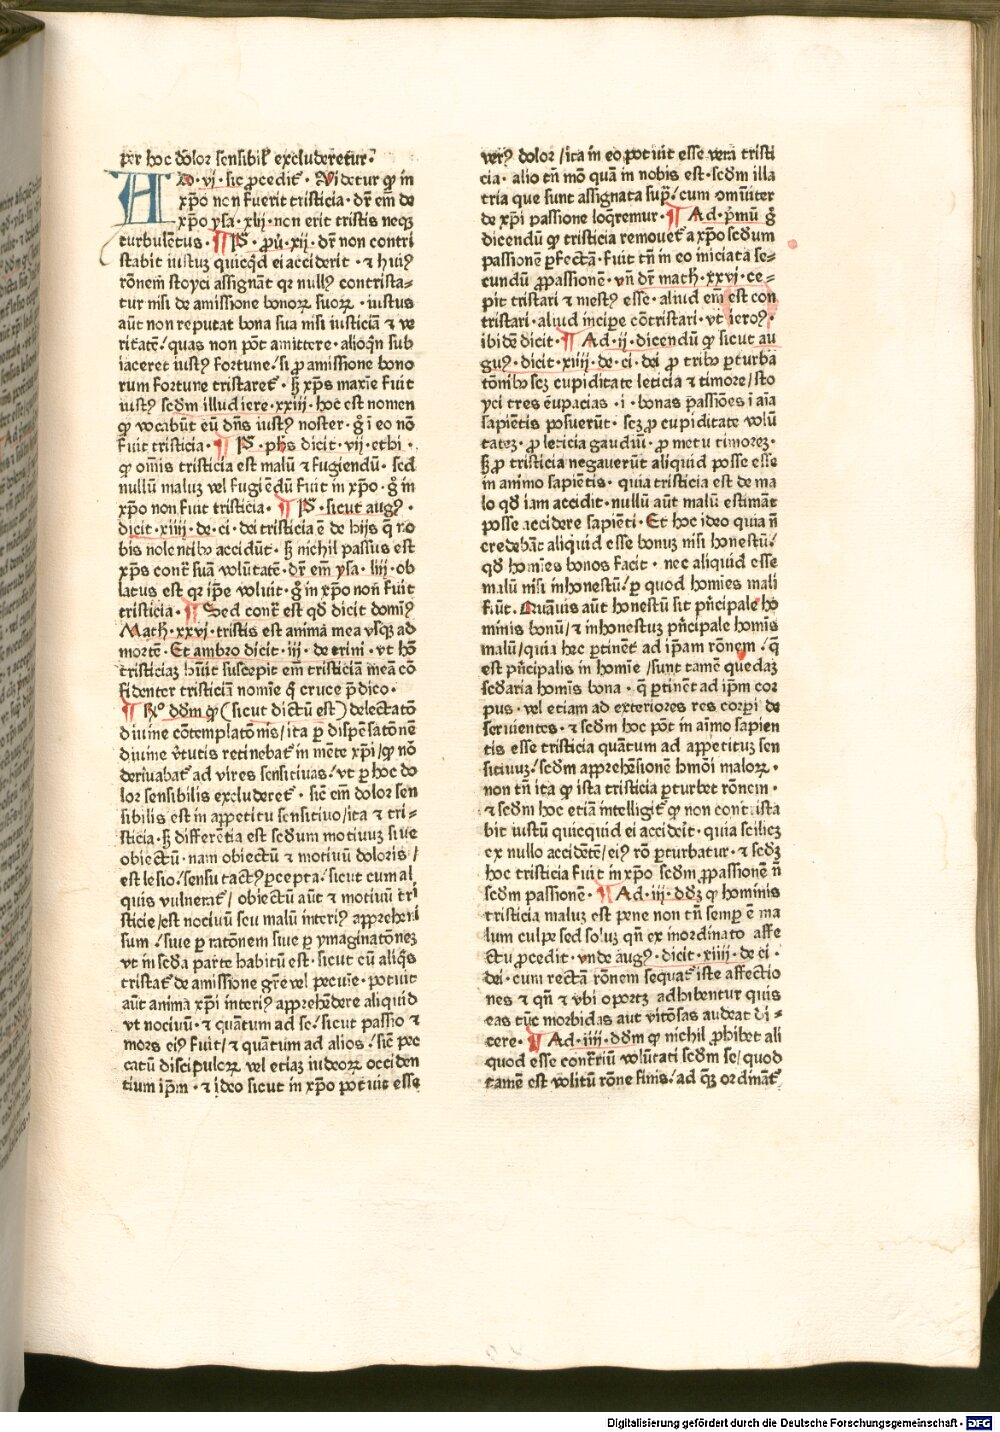 per hoc dolor sensibil' excluderetur.
AD · vj · sic ꝓcedit̃ · Videtur ꝙ in
xp̃o non fuerit tristicia · dr̃ em̃ de
xp̃o ysa · xlij · non erit tristis neqꝫ
turbulẽtus · ¶ Pẜ · ꝓũ · xij · dr̃ non contri
stabit iustuꝫ quicq̃d ei acciderit · ⁊ huiꝰ
rõnem stoyci assignãt qꝛ nullꝰ contrista-
tur nisi de amissione bonoꝝ suoꝝ · iustus
aũt non reputat bona sua nisi iusticiã ⁊ ve
ritatẽ / quas non põt amittere · alioq̃n sub
iaceret iustꝰ fortune / si ꝓ amissione bono
rum fortune tristaret̃ · sꝫ xp̃s maxĩe fuit
iustꝰ scd̃m illud iere · xxiij · hoc est nomen
ꝙ vocabũt eũ dñs iustꝰ noster · g̊ ĩ eo nõ
fuit tristicia · ¶ Pẜ · ph̃s dicit · vij · ethi ·
ꝙ om̃is tristicia est malũ ⁊ fugiendũ · sed
nullũ maluꝫ vel fugiẽdũ fuit in xp̃o · g̊ in
xp̃o non fuit tristicia · ¶ Pẜ · sicut augꝰ ·
dicit · xiiij · de · ci · dei tristicia ẽ de hijs q̃ no
bis nolentibꝰ accidũt · sꝫ nichil passus est
xp̃s cont̃ suã volũtatẽ · dr̃ em̃ ysa · liij · ob
latus est qꝛ ip̃e voluit · g̊ ĩ xp̃o non fuit
tristicia · ¶ Sed cont̃ est qd̃ dicit dominꝰ
Math̃ · xxvj · tristis est anima mea vsqꝫ ad
mortẽ · Et ambro dicit · iij · de trini · vt hõ
tristiciaꝫ hũit suscepit em̃ tristiciã meã cõ
fidenter tristiciã nomĩe q̃ cruce p̃dico ·
¶ Rº dd̃m ꝙ (sicut dictũ est) delectatõ
diuine cõtemplatõnis / ita ꝑ dispẽsatõnẽ
diuine v̓tutis retinebat̃ in mẽte xp̃i / ꝙ nõ
deriuabat̃ ad vires sensitiuas / vt ꝑ hoc do
lor sensibilis excluderet̃ · sic̃ em̃ dolor sen
sibilis est in appetitu sensitiuo / ita ⁊ tri-
sticia · sꝫ differẽtia est scd̃um motiuuꝫ siue
obiectũ · nam obiectũ ⁊ motiuũ doloris /
est lesio / sensu tactꝰ ꝑcepta / sicut cum al
quis vulnerat̃ / obiectũ aũt ⁊ motiuũ tri
sticie / est nociuũ seu malũ interiꝰ appreheñ
sum / siue ꝑ ratõnem siue ꝑ ymaginatõneꝫ
vt in scd̃a parte habitũ est · sicut cũ aliq̃s
tristat̃ de amissione gr̃e vel pecũie · potuit
aũt anima xp̃i interiꝰ apprehẽdere aliquid
vt nociuũ · ⁊ quãtum ad se / sicut passio ⁊
mors eiꝰ fuit / ⁊ quãtum ad alios / sic̃ pec
catũ discipuloꝝ vel etiaꝫ iudeoꝝ occiden
tium ip̃m · ⁊ ideo sicut in xp̃o potuit esse
verꝰ dolor / ita in eo potuit esse vera tristi
cia · alio tñ mõ quã in nobis est · scd̃m illa
tria que sunt assignata supͣ / cum om̃niter
de xp̃i passione loq̃remur · ¶ Ad · p̃mũ g̊
dicendũ ꝙ tristicia remouet̃ a xp̃o scd̃um
passionẽ ꝑfectã · fuit tñ in eo iniciata se-
cundũ ꝓpassionẽ · vñ dr̃ math̃ · xxvj · ce-
pit tristari ⁊ mestꝰ esse · aliud em̃ est con
tristari · aliud incipe cõtristari · vt ieroꝰ ·
ibidẽ dicit · ¶ Ad · ij · dicendũ ꝙ sicut au
guꝰ · dicit · xiiij · de · ci · dei ꝓ tribꝰ ꝑturba
tõnibꝰ scꝫ cupiditate leticia ⁊ timore / sto
yci tres eupacias · i · bonas passiões ĩ aĩa
sapiẽtis posuerũt · scꝫ ꝓ cupiditate volũ
tateꝫ · ꝓ leticia gaudiũ · ꝓ metu timoreꝫ ·
sꝫ ꝓ tristicia negauerũt aliquid posse esse
in animo sapiẽtis · quia tristicia est de ma
lo qd̃ iam accidit · nullũ aũt malũ estimãt
posse accidere sapiẽti · Et hoc ideo quia ñ
credebãt aliquid esse bonuꝫ nisi honestũ /
qd̃ homĩes bonos facit · nec aliquid esse
malũ nisi inhonestũ / ꝑ quod homĩes mali
fiũt · Quãuis aũt honestũ sit pñcipale ho
minis bonũ / ⁊ inhonestuꝫ pñcipale homĩs
malũ / quia hec ꝑtinẽt ad ip̃am rõnem / q̃
est pñcipalis in homĩe / sunt tamẽ quedaꝫ
scd̃aria homĩs bona · q̃ ꝑtinẽt ad ip̃m cor
pus · vel etiam ad exteriores res corpi de
seruientes · ⁊ scd̃m hoc põt in aĩmo sapien
tis esse tristicia quãtum ad appetituꝫ sen
sitiuuꝫ / scd̃m apprehẽsionẽ hm̃oi maloꝝ ·
non tñ ita ꝙ ista tristicia ꝑturbet rõnem ·
⁊ scd̃m hoc etiã intelligit̃ ꝙ non contrista
bit iustũ quicquid ei acciderit · quia scilicꝫ
ex nullo accidẽte / eiꝰ rõ ꝑturbatur · ⁊ scd̃ꝫ
hoc tristicia fuit in xp̃o scd̃m ꝓpassionẽ ñ
scd̃m passionẽ · ¶ Ad · iij · dd̃ꝫ ꝙ hominis
tristicia maluꝫ est pene non tñ semꝑ ẽ ma
lum culpe sed soluꝫ qñ ex inordinato affe
ctu ꝓcedit · vnde augꝰ · dicit · xiiij · de ci ·
dei · cum rectã rõnem sequat̃ iste affectio
nes ⁊ qñ ⁊ vbi oportꝫ adhibentur quis
eas tũc morbidas aut vitõsas audeat di-
cere · ¶ Ad · iiij · dd̃m ꝙ nichil ꝓhibet ali
quod esse cont̃riũ volũtati scd̃m se / quod
tamẽ est volitũ rõne finis / ad q̃ꝫ ordinãt̃
Digitalisierung gefördert durch die Deutsche Forschungsgemeinschaft · DFG